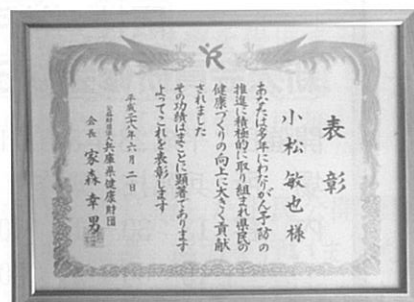 表彰
小松敏也様
あなたは多年にわたりがん予防の
推進に積極的に取り組まれ県民の
健康づくりの向上に大きく貢献
されました
その功績はまことに顕著であります
よってこれを表彰します
平成二十八年六月二日
公益財団法人兵庫県健康財団
会長 家森幸男